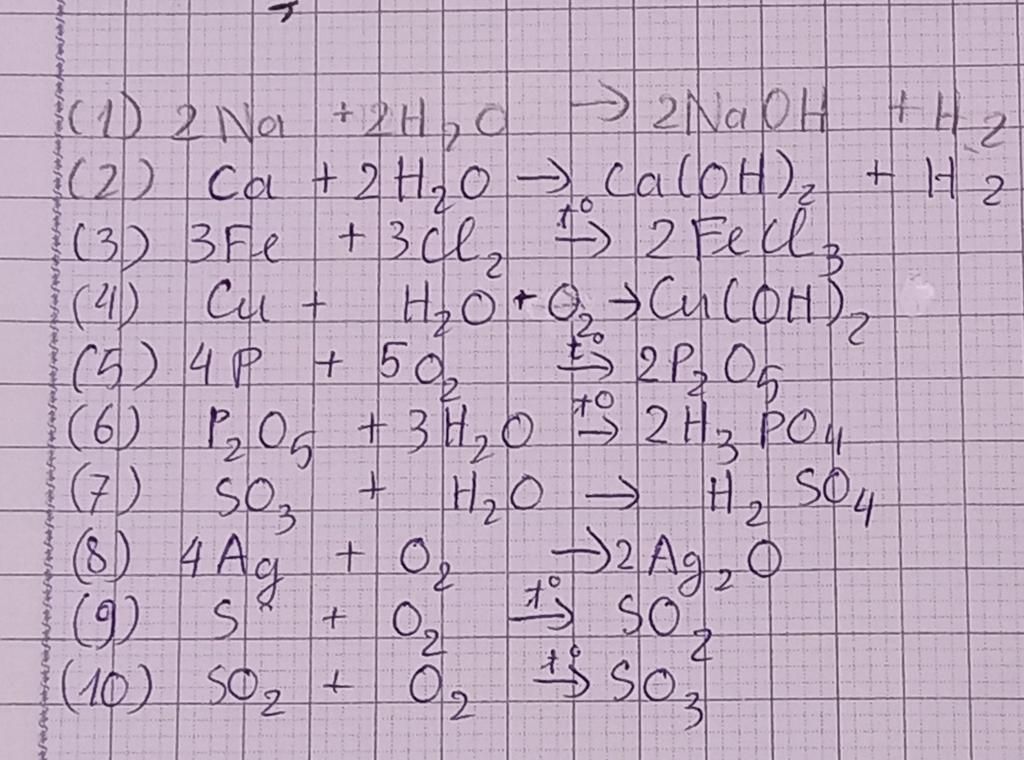 (1) 2Na + 2H₂O → 2NaOH + H₂
(2) Ca + 2H₂O → Ca(OH)₂ + H₂
(3) 3Fe + 3Cl₂ t° → 2FeCl₃
(4) Cu + H₂O + O₂ → Cu(OH)₂
(5) 4P + 5O₂ t° → 2P₂O₅
(6) P₂O₅ + 3H₂O t° → 2H₃PO₄
(7) SO₃ + H₂O → H₂SO₄
(8) 4Ag + O₂ → 2Ag₂O
(9) S + O₂ t° → SO₂
(10) SO₂ + O₂ t° → SO₃